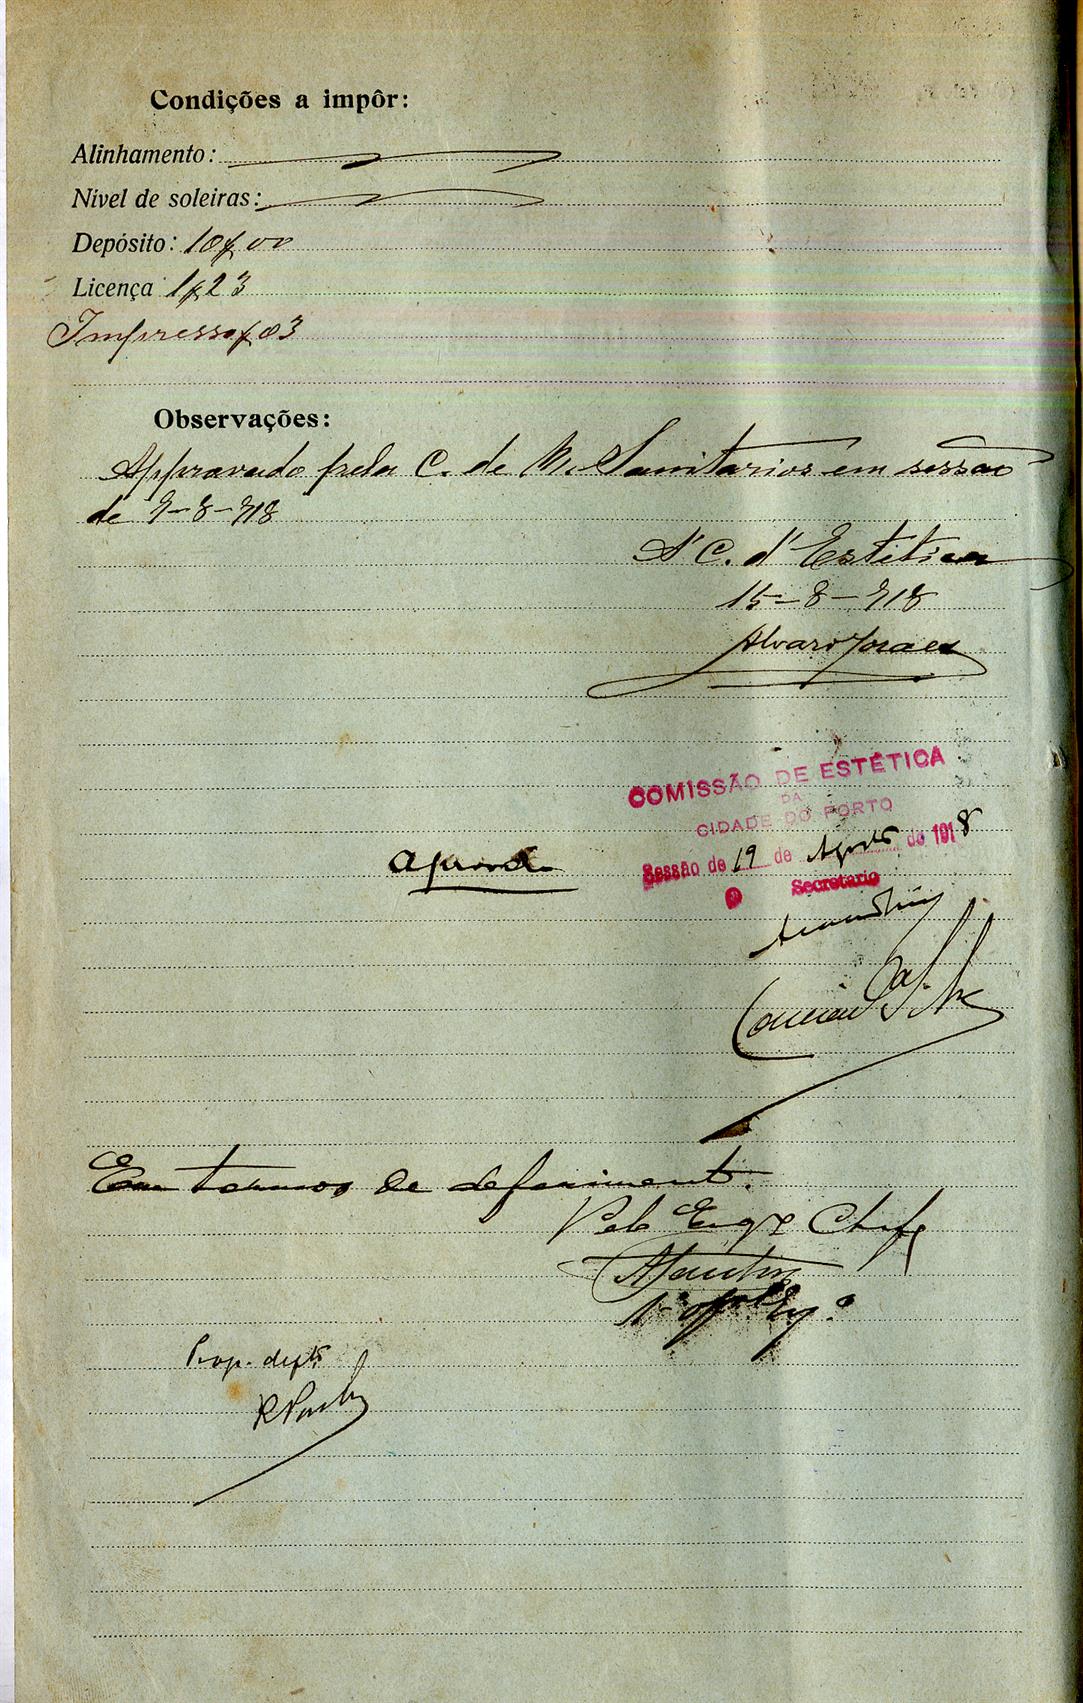 Condições a impôr:
Alinhamento:
Nível de soleiras:
Depósito: 10$00
Licença 1$23
Impresso $03
Observações:
Approvado pela C. de M. Sanitarios em sessão
de 9-8-918
A' C. d'Estética
15-8-918
Alvaro
COMISSÃO DE ESTÉTICA
DA
CIDADE DO PORTO
Sessão de 19 de Agosto de 1918
O Secretario
Em termos de deferimento.
Pelo Engº Chefe